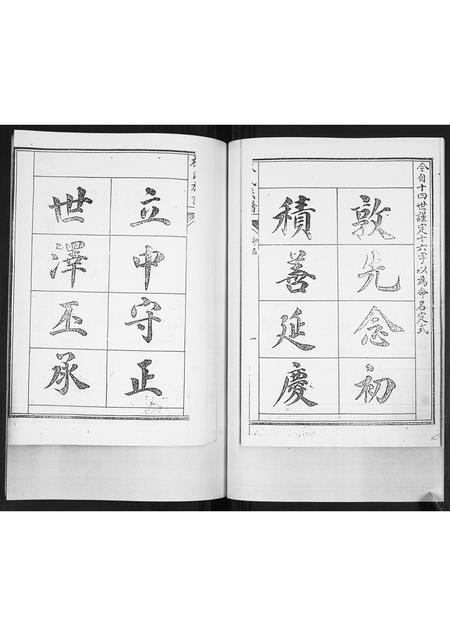 今自十四世謹定十六字以為命名定式
敦先念初
積善延慶
立中守正
世澤丕承